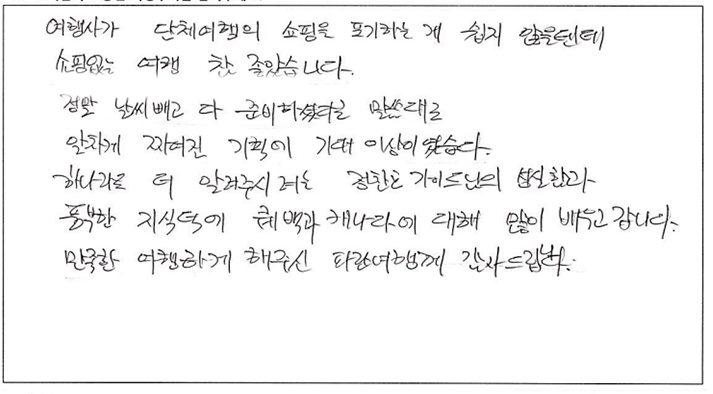 여행사가 단체여행의 쇼핑을 포기하는 게 쉽지 않을텐데
쇼핑없는 여행 참 좋았습니다.
정말 날씨빼고 다 준비하셨다는 말씀대로
알차게 짜여진 기획에 기대 이상이였습니다.
하나라도 더 알려주시려는 가이드님의 성실함과
풍부한 지식덕에 퀘백과 캐나다에 대해 많이 배우고 갑니다.
만족한 여행하게 해주신 파란여행께 감사드립니다.